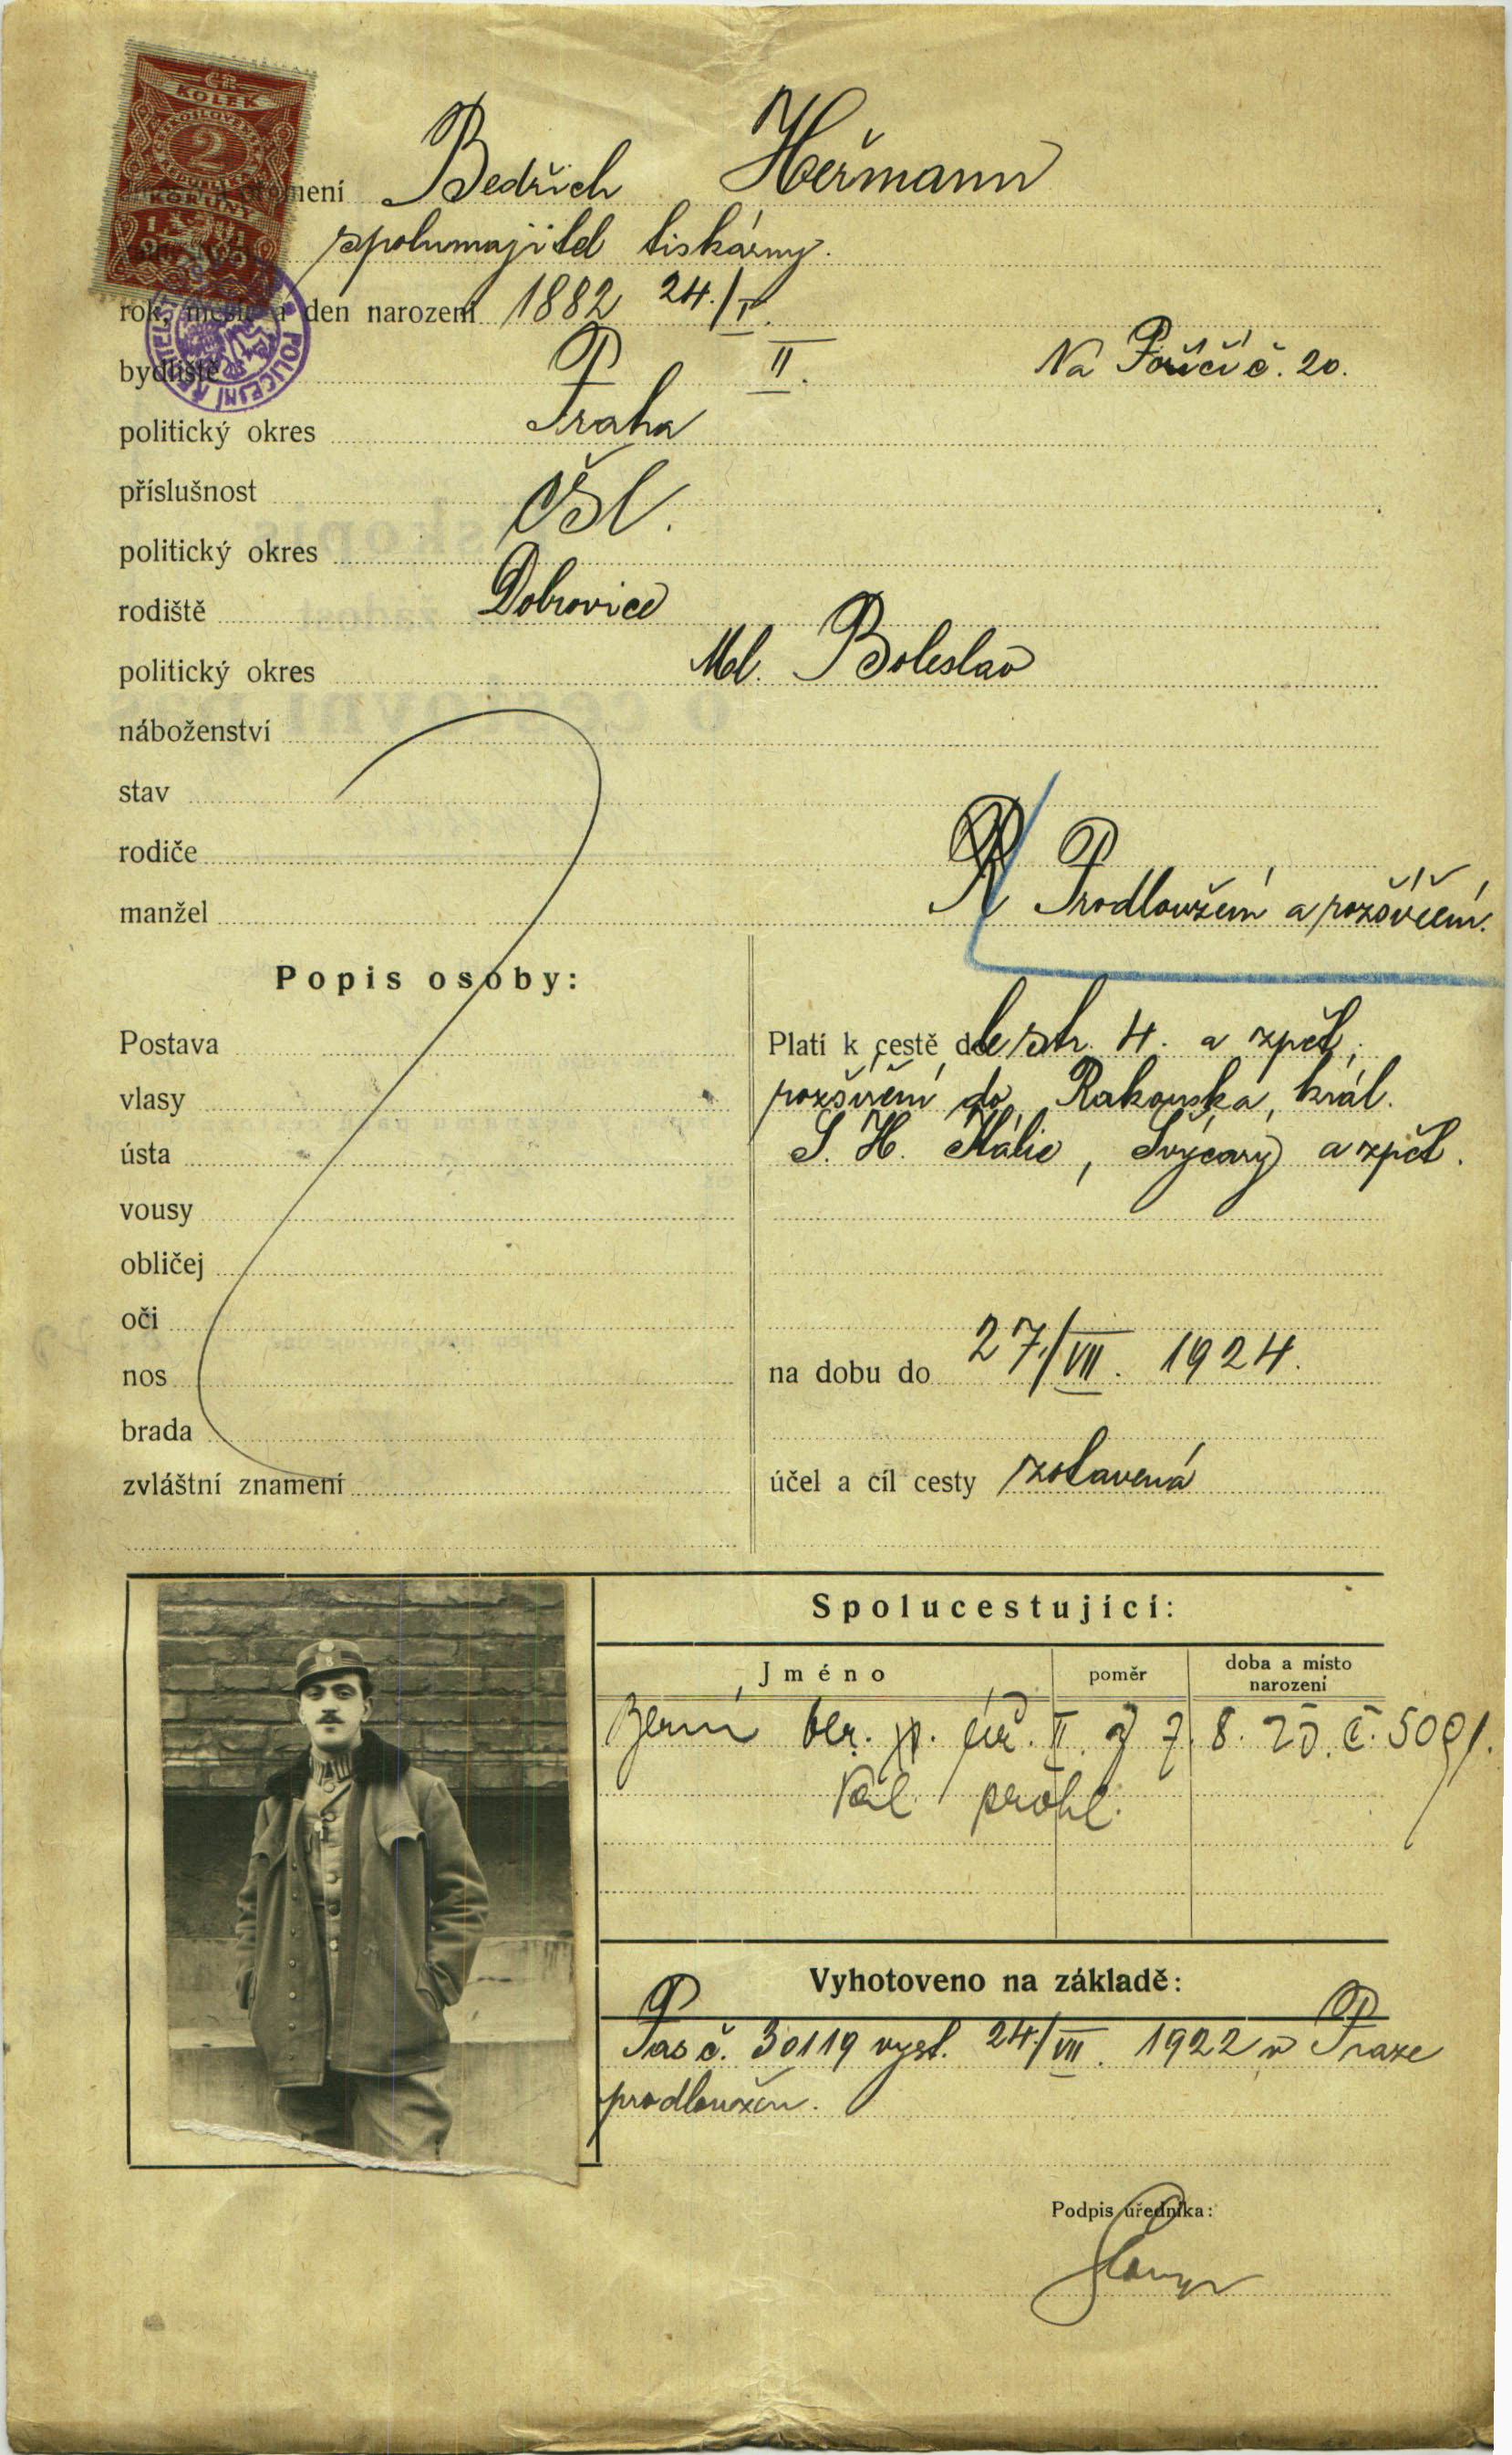 KOLEK
2
KORUNY
POLICEJNÍ
jméní Bedřich Heřmann
spolumajitel tiskárny.
rok, měsíc a den narození 1882 24./I.
bydliště II. Na Poříčí č. 20.
politický okres Praha
příslušnost čsl.
politický okres
rodiště Dobrovice
politický okres Ml. Boleslav
náboženství
stav
rodiče
manžel Prodloužení a rozšíření.
Popis osoby:
Postava
vlasy
ústa
vousy
obličej
oči
nos
brada
zvláštní znamení
Platí k cestě do le str. 4. a zpět,
rozšíření do Rakouska, král.
S. H. Itálie, Švýcary a zpět.
na dobu do 27./VII. 1924.
účel a cíl cesty zotavená
Spolucestující:
Jméno poměr doba a místo narození
ber. II. 8. č. 509
Vyhotoveno na základě:
Pas č. 30119 vyst. 24./VII. 1922 v Praze
prodloužen.
Podpis úředníka: